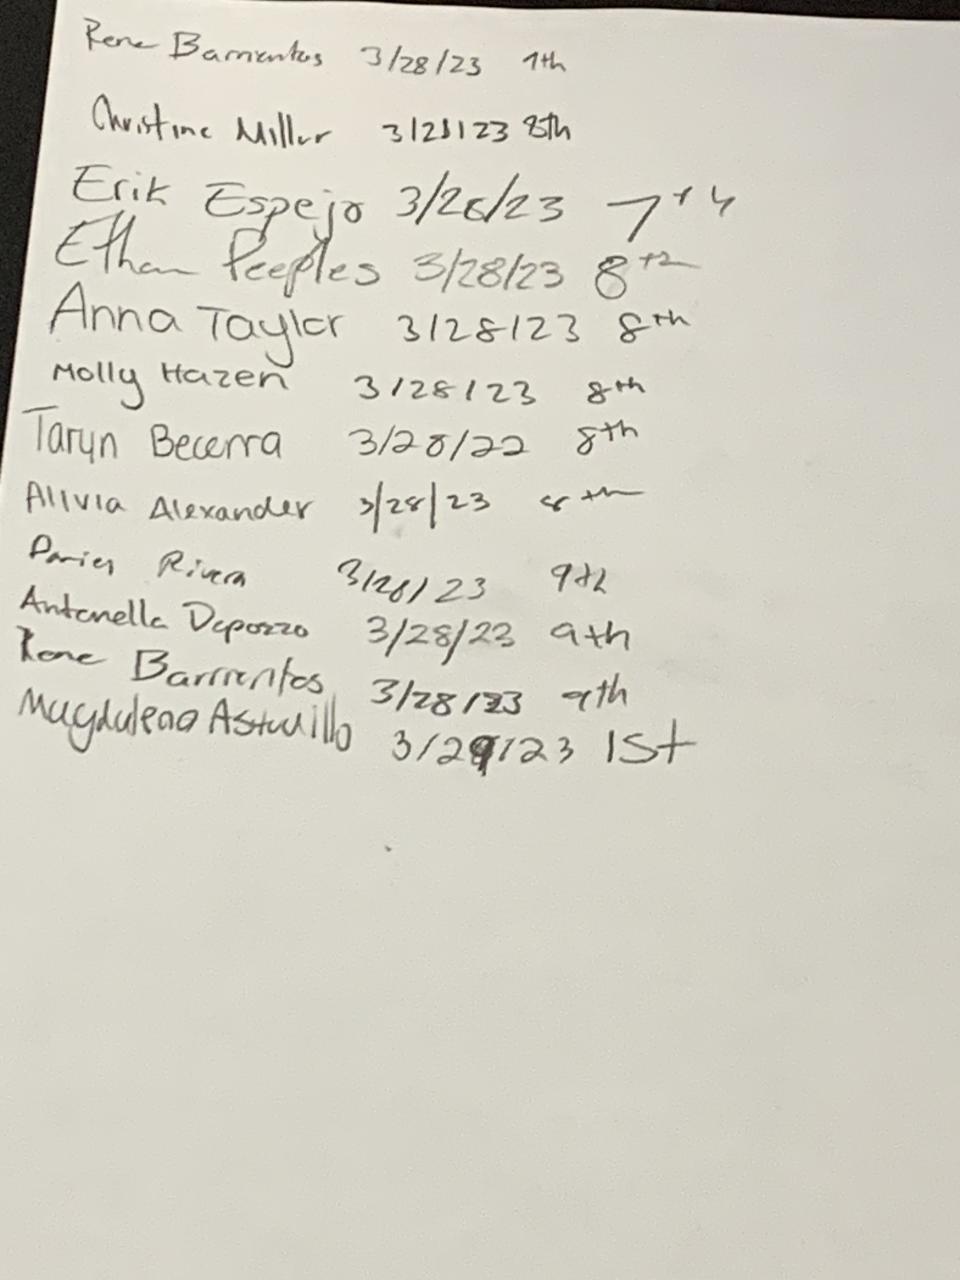 Rene Barrientos 3/28/23 7th
Christine Miller 3/28/23 8th
Erik Espejo 3/28/23 7th
Ethan Peeples 3/28/23 8th
Anna Taylor 3/28/23 8th
Molly Hazen 3/28/23 8th
Taryn Becerra 3/28/22 8th
Alivia Alexander 3/28/23 8th
Rivera 3/28/23 9th
Antonella Depozzo 3/28/23 9th
Rene Barrientos 3/28/23 9th
Magdalena 3/29/23 1st